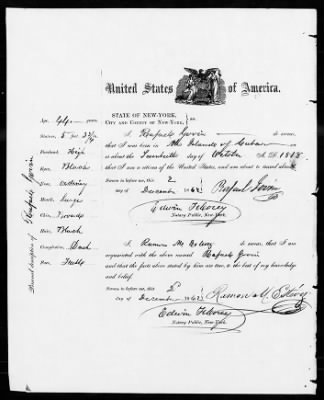 United States of America.
STATE OF NEW-YORK,
CITY AND COUNTY OF NEW-YORK, } ss.
I Rafael Govin do swear,
that I was born in the Islands of Cuba
on or about the Twentieth day of October A. D. 1818
that I am a citizen of the United States, and am about to travel abroad
Sworn to before me, this 2
day of December 1862 } Rafael Govin
Edwin F. Corey
Notary Public, New-York.
I, Ramon M. Estevez do swear, that I am
acquainted with the above named Rafael Govin
and that the facts above stated by him are true, to the best of my knowledge
and belief.
Sworn to before me, this 2
day of December 1862 } Ramon M. Estevez
Edwin F. Corey
Notary Public, New-York.
Personal description of Rafael Govin
Age, 44 years
Stature, 5 feet
Forehead, High
Eyes, Black
Nose, ordinary
Mouth, large
Chin, round
Hair, Black
Complexion, Dark
Face,